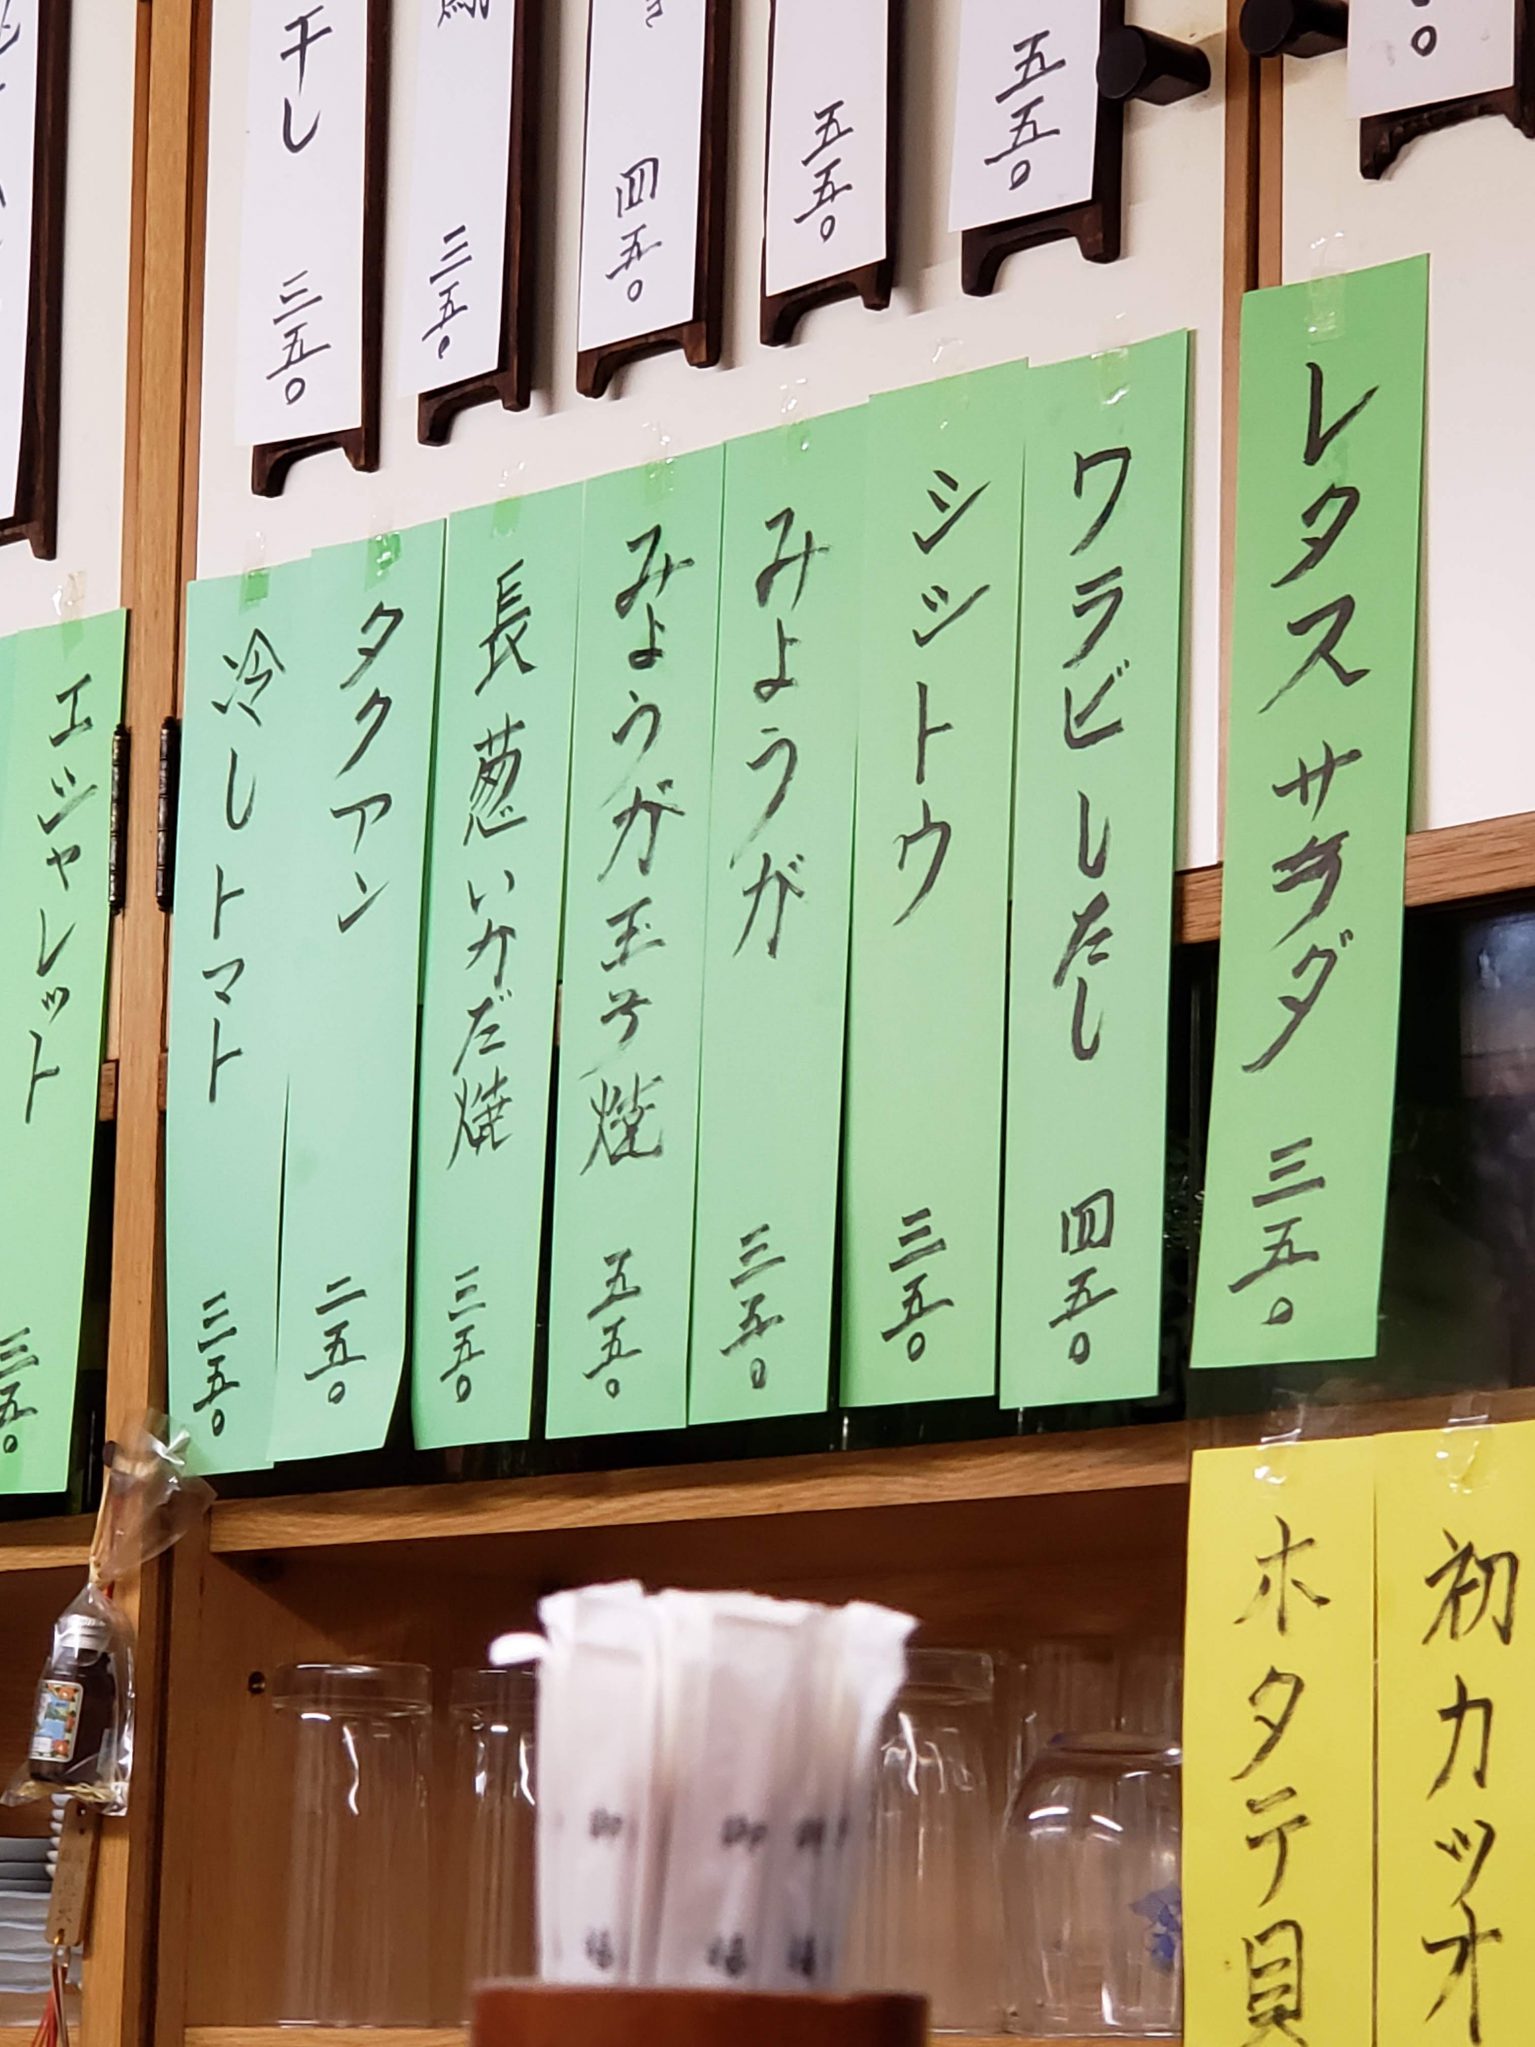 五五〇
五五〇
四五〇
三五〇
干し 三五〇
レタスサラダ 三五〇
ワラビしたし 四五〇
シシトウ 三五〇
みょうが 三五〇
みょうが玉子焼 五五〇
長葱いかだ焼 三五〇
タクアン 二五〇
冷しトマト 三五〇
エシャレット 三五〇
初カツオ
ホタテ貝